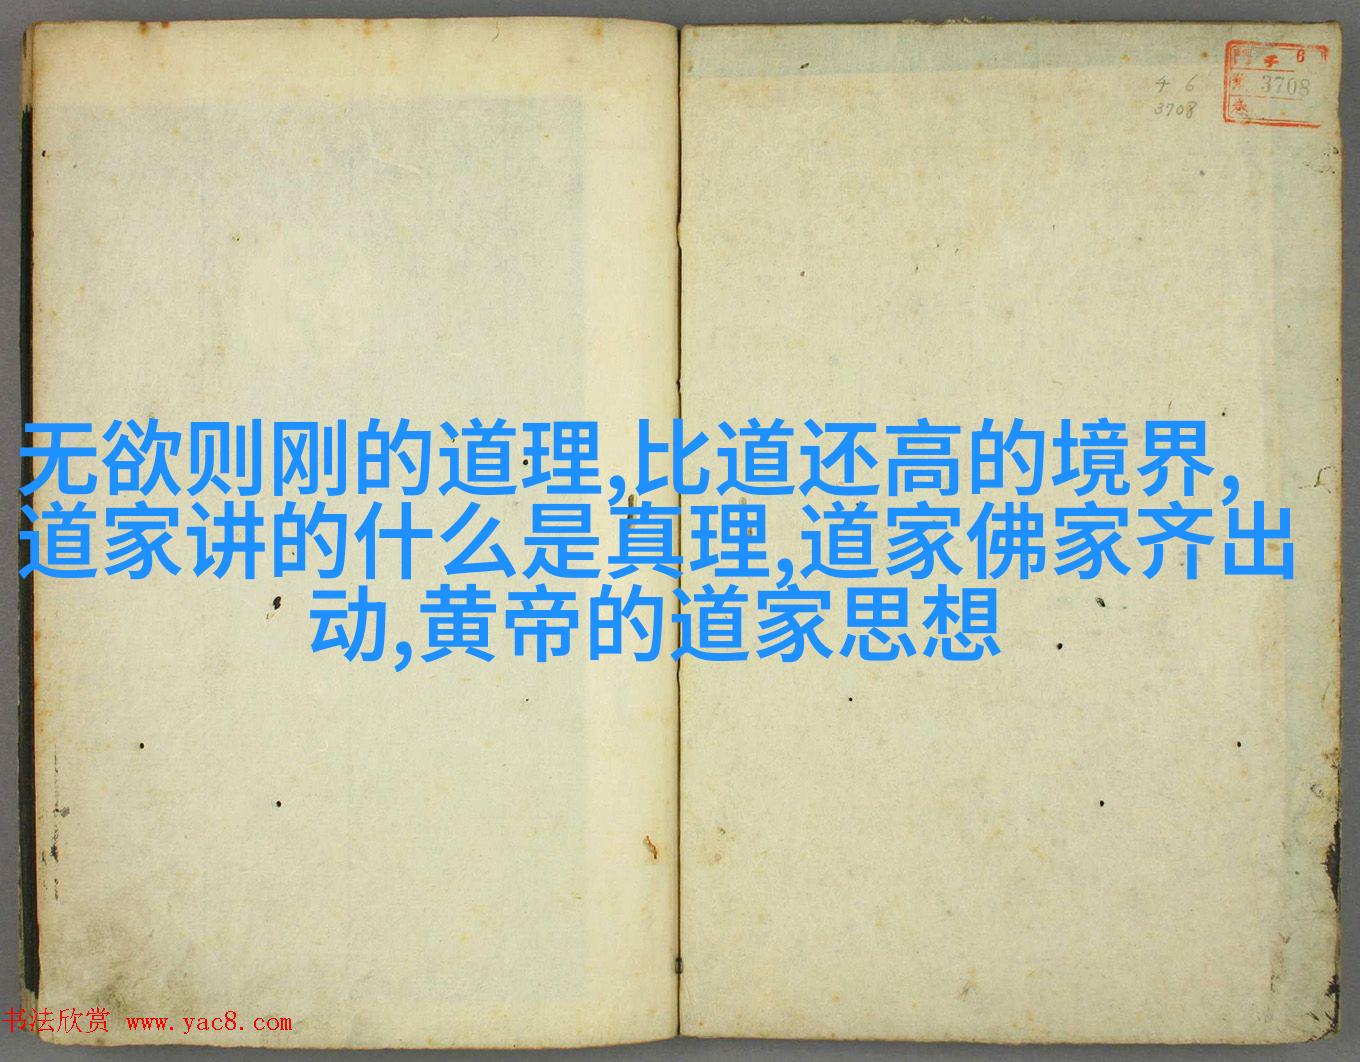 門 チ 6
3708
4 6
3708
无欲则刚的道理,比道还高的境界,
道家讲的什么是真理,道家佛家齐出
动,黄帝的道家思想
书法欣赏 www.yac8.com